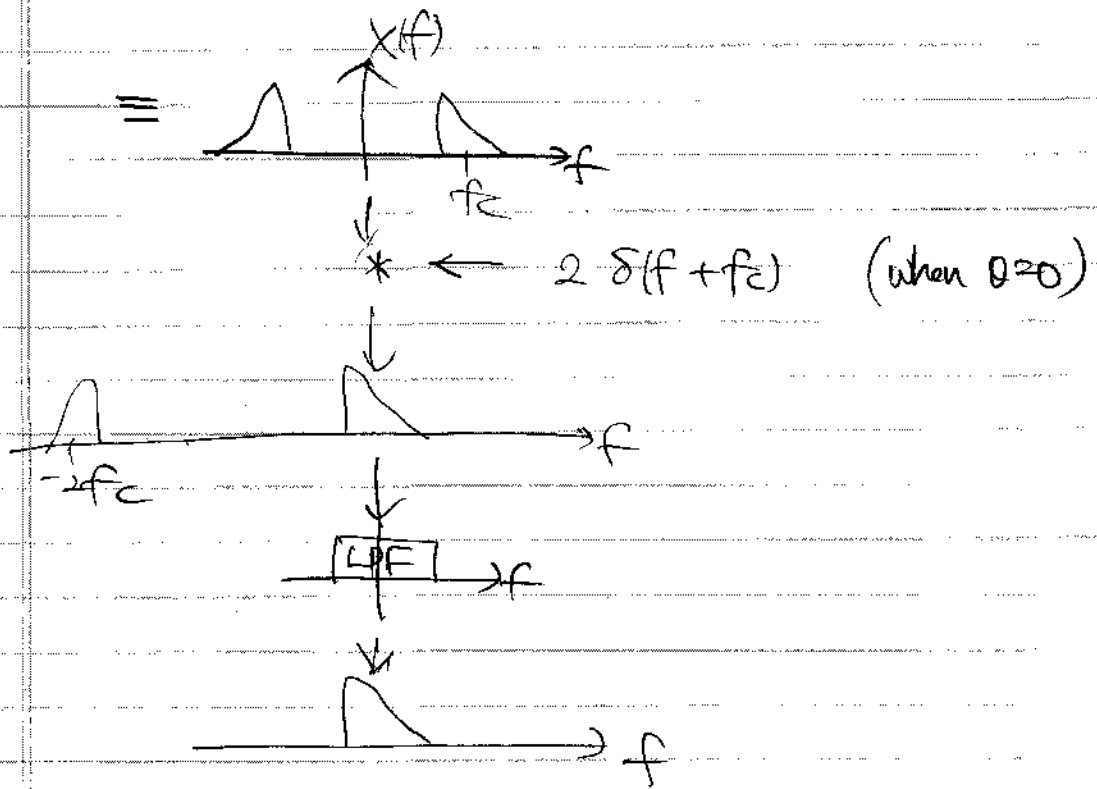 X(f)
≡
f
fc
* ← 2 δ(f + fc) (when θ=0)
f
-2fc
LPF
f
f